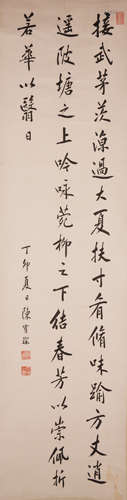 接武茅茨涼過大夏扶寸肴脩味踰方丈逍
遥陂塘之上吟咏菀柳之下結春芳以崇佩折
若華以翳日
丁卯夏日陳寶琛